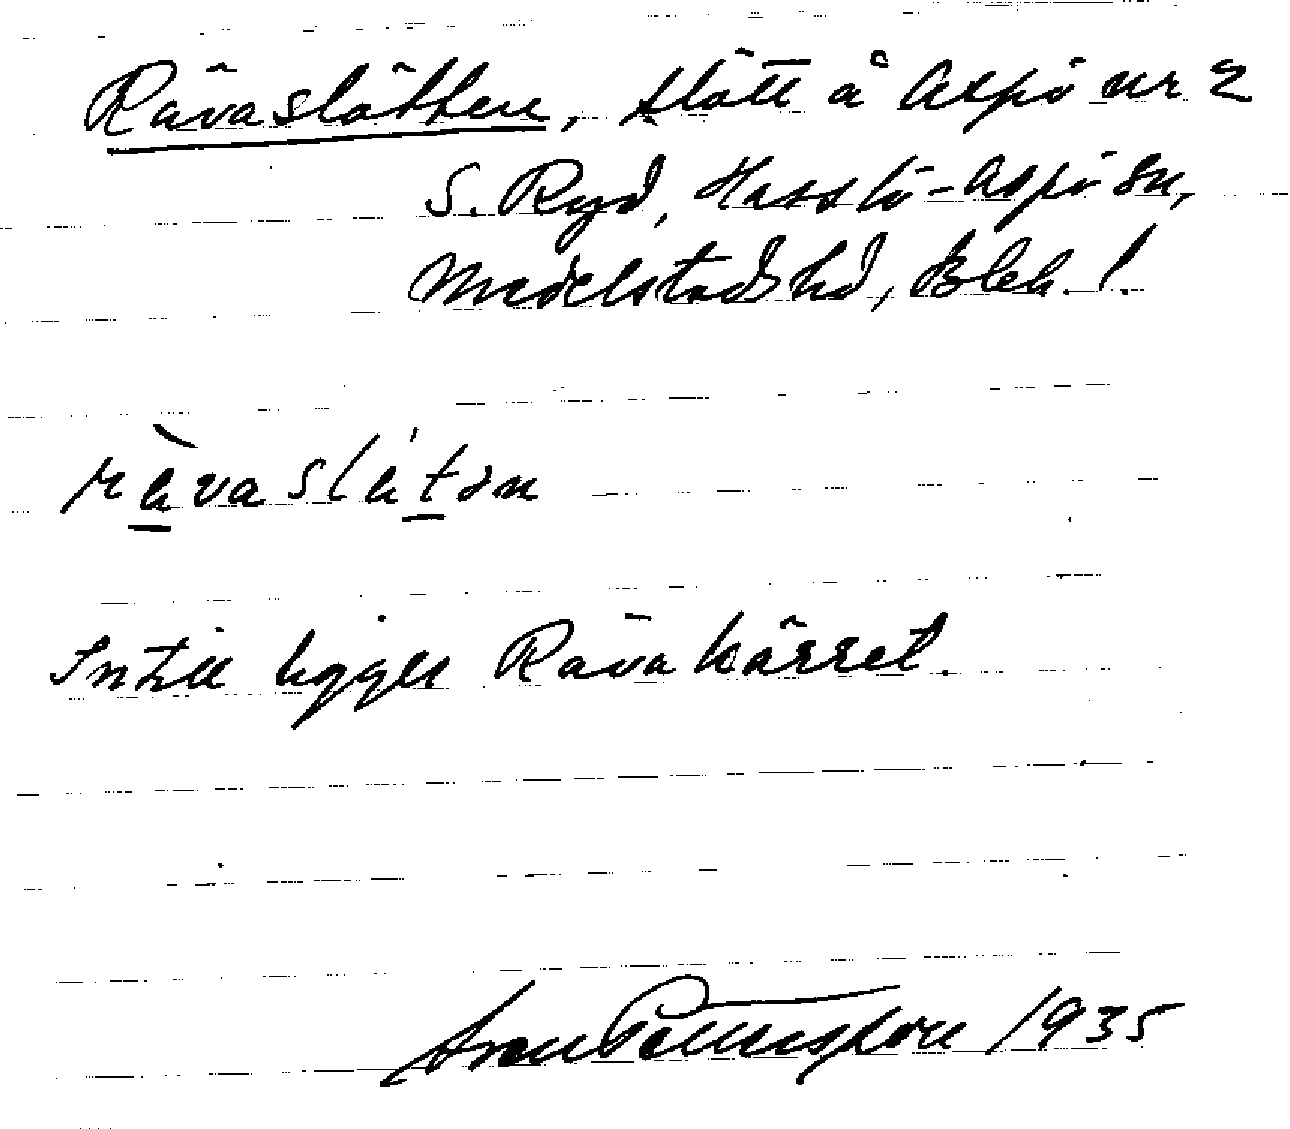 Rävaslätten, slätt å Aspö nr 2
S. Ryd, Hasslö-Aspö sn,
Medelstads hd, Blek. l.
rävaslätən
Intill ligger Rävakärret.
Sven Benson 1935